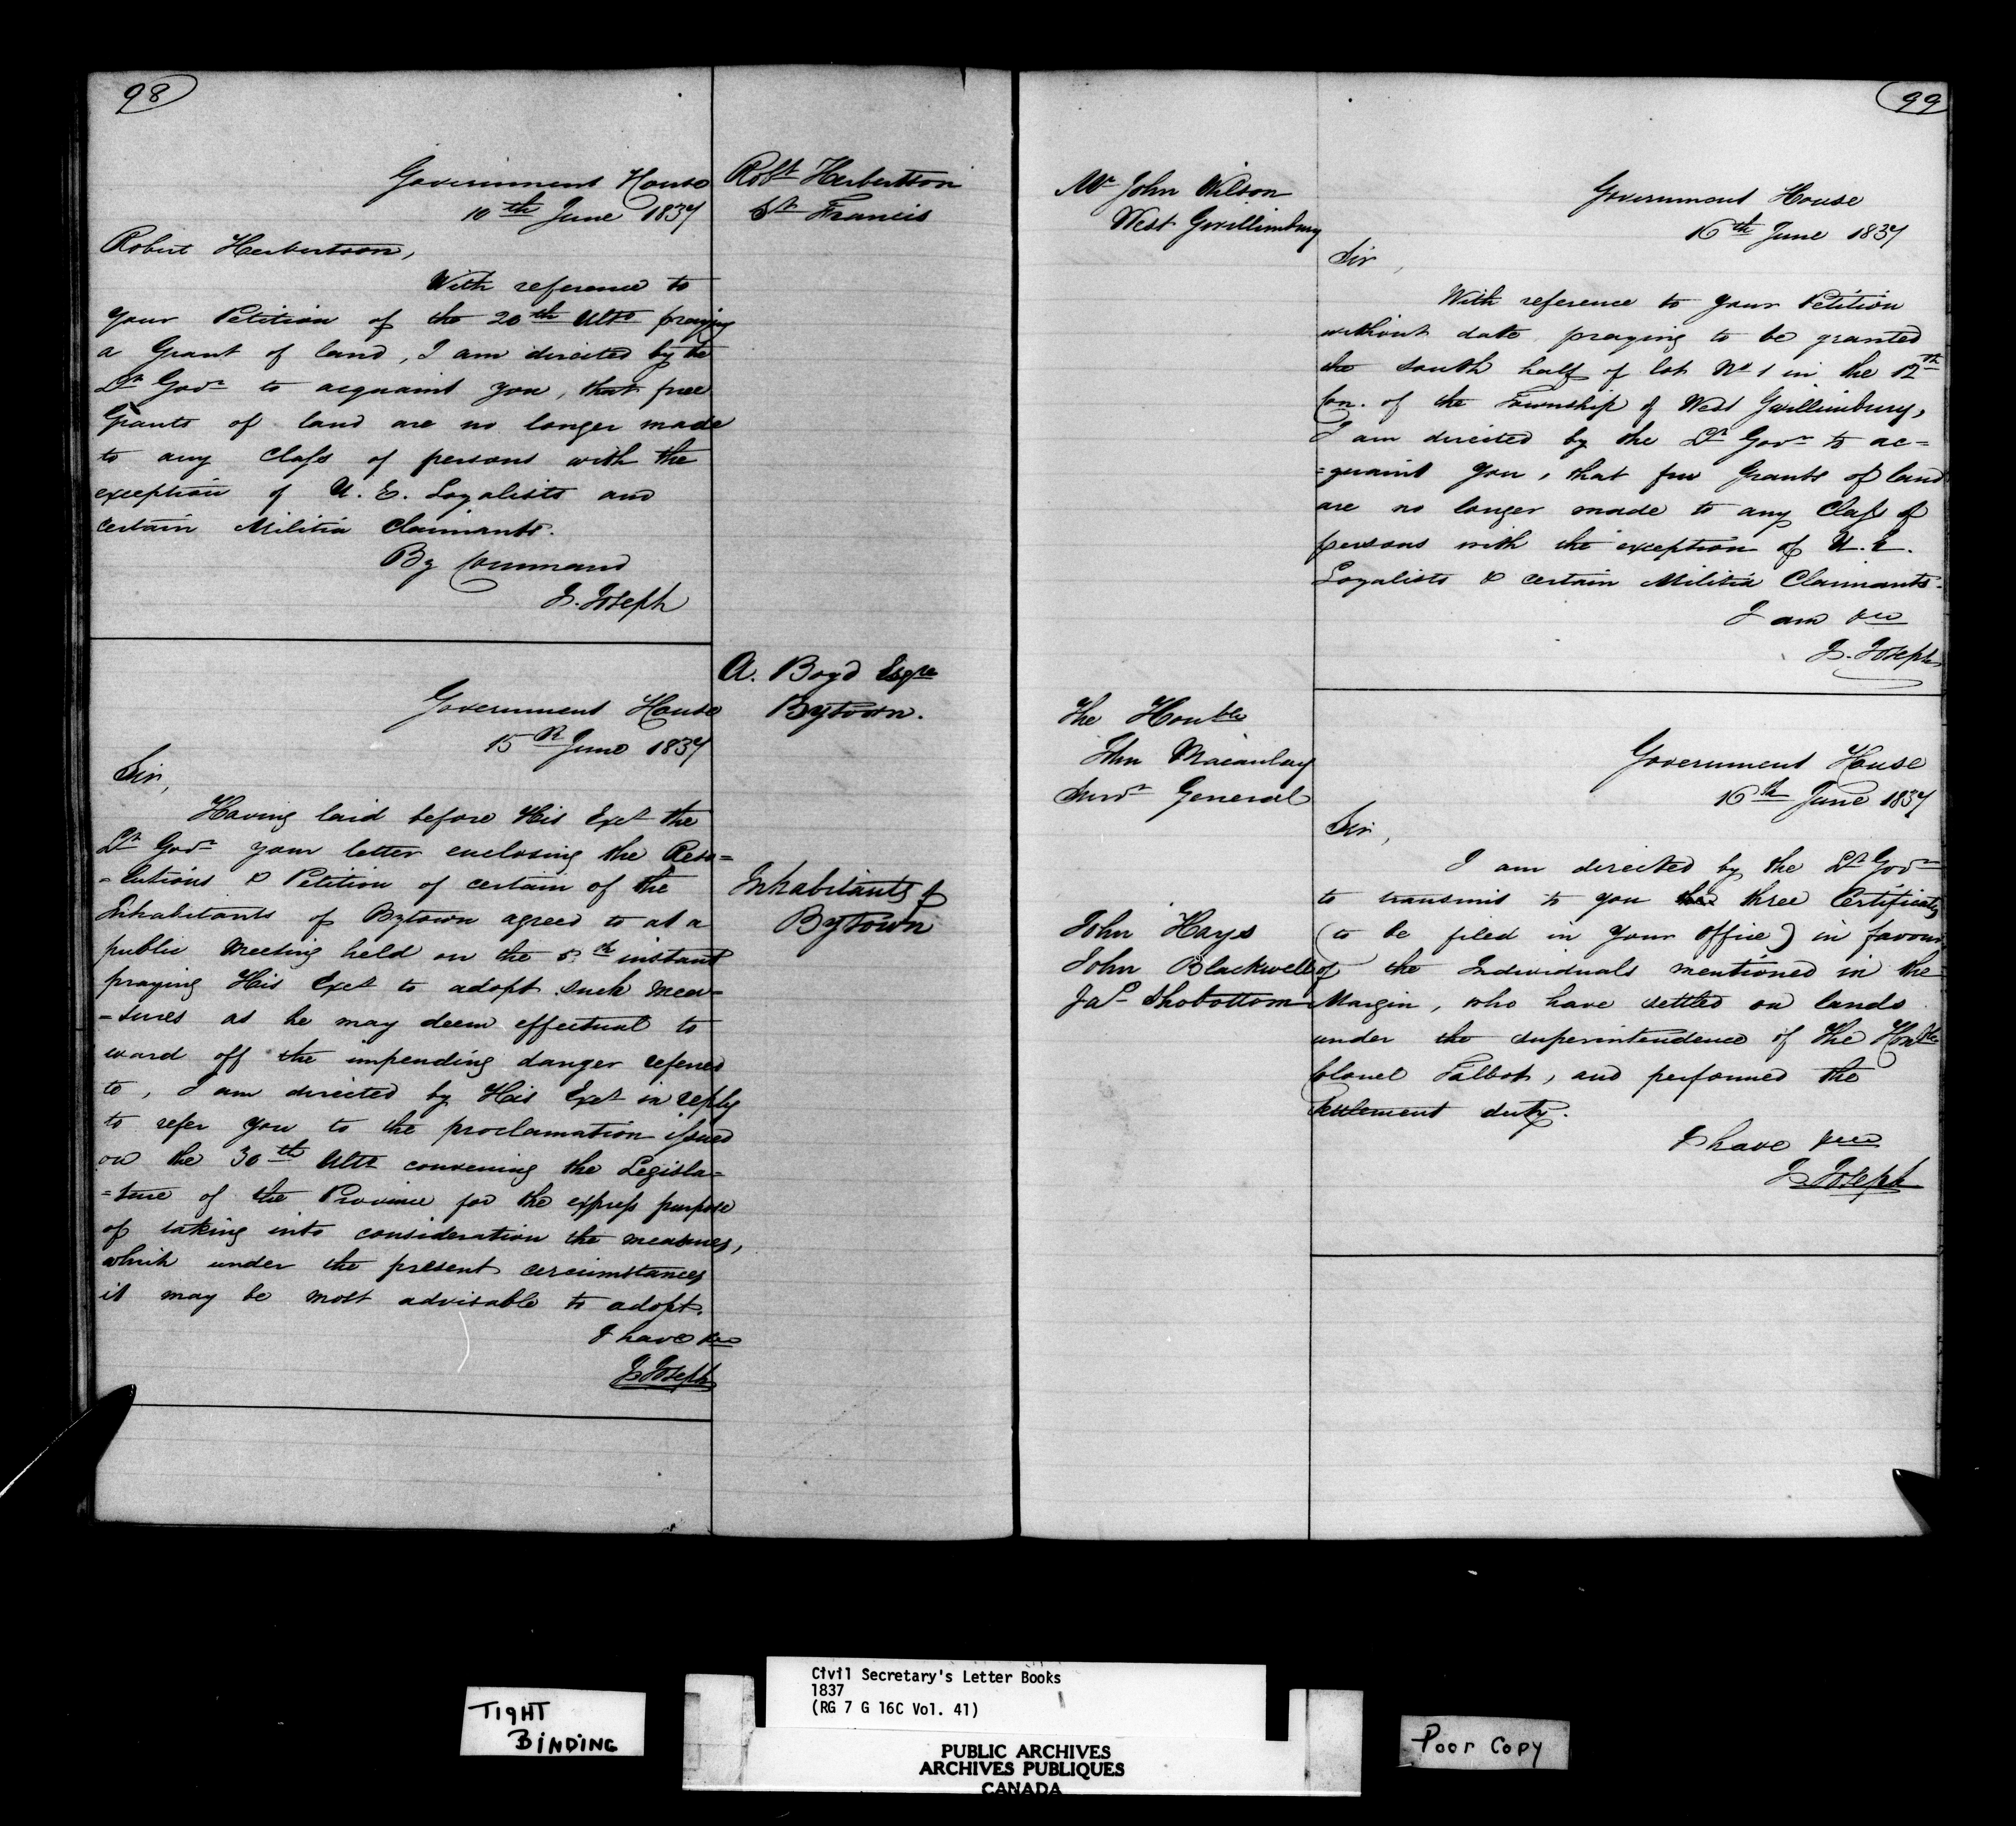 98
Government House
10th June 1837
Robt Herbertson
St Francis
Robert Herbertson,
With reference to
your Petition of the 20th Ulto praying
a Grant of land, I am directed by the
Lt Govr to acquaint you, that free
Grants of land are no longer made
to any Class of persons with the
exception of U. E. Loyalists and
certain Militia Claimants.
By Command
J. Joseph
A. Boyd Esqre
Bytown.
Government House
15th June 1837
Sir,
Having laid before His Excy the
Lt Govr your letter enclosing the Reso=
=lutions & Petition of certain of the
Inhabitants of Bytown agreed to at a
public Meeting held on the 5th instant
praying His Excy to adopt such mea=
=sures as he may deem effectual to
ward off the impending danger referred
to, I am directed by His Excy in reply
to refer you to the proclamation issued
on the 30th Ulto convening the Legisla=
=ture of the Province for the express purpose
of taking into consideration the measures,
which under the present circumstances
it may be most advisable to adopt.
I have &c
J Joseph
Inhabitants of
Bytown
99
Mr John Wilson
West Gwillimbury
Government House
16th June 1837
Sir,
With reference to your Petition
without date praying to be granted
the south half of lot No 1 in the 12th
Con. of the Township of West Gwillimbury,
I am directed by the Lt Govr to ac=
=quaint you, that free Grants of land
are no longer made to any Class of
persons with the exception of U. E.
Loyalists & certain Militia Claimants.
I am &c
J. Joseph
The Honble
John Macaulay
Survr General
Government House
16th June 1837
Sir,
I am directed by the Lt Govr
to transmit to you three Certificates
(to be filed in your office) in favour
of the Individuals mentioned in the
Margin, who have settled on lands
under the superintendence of the Honble
Colonel Talbot, and performed the
settlement duty.
I have &c
J Joseph
John Hays
John Blackwell
Jas Shobottom
TIGHT
BINDING
Civil Secretary's Letter Books
1837
(RG 7 G 16C Vol. 41)
PUBLIC ARCHIVES
ARCHIVES PUBLIQUES
CANADA
Poor Copy